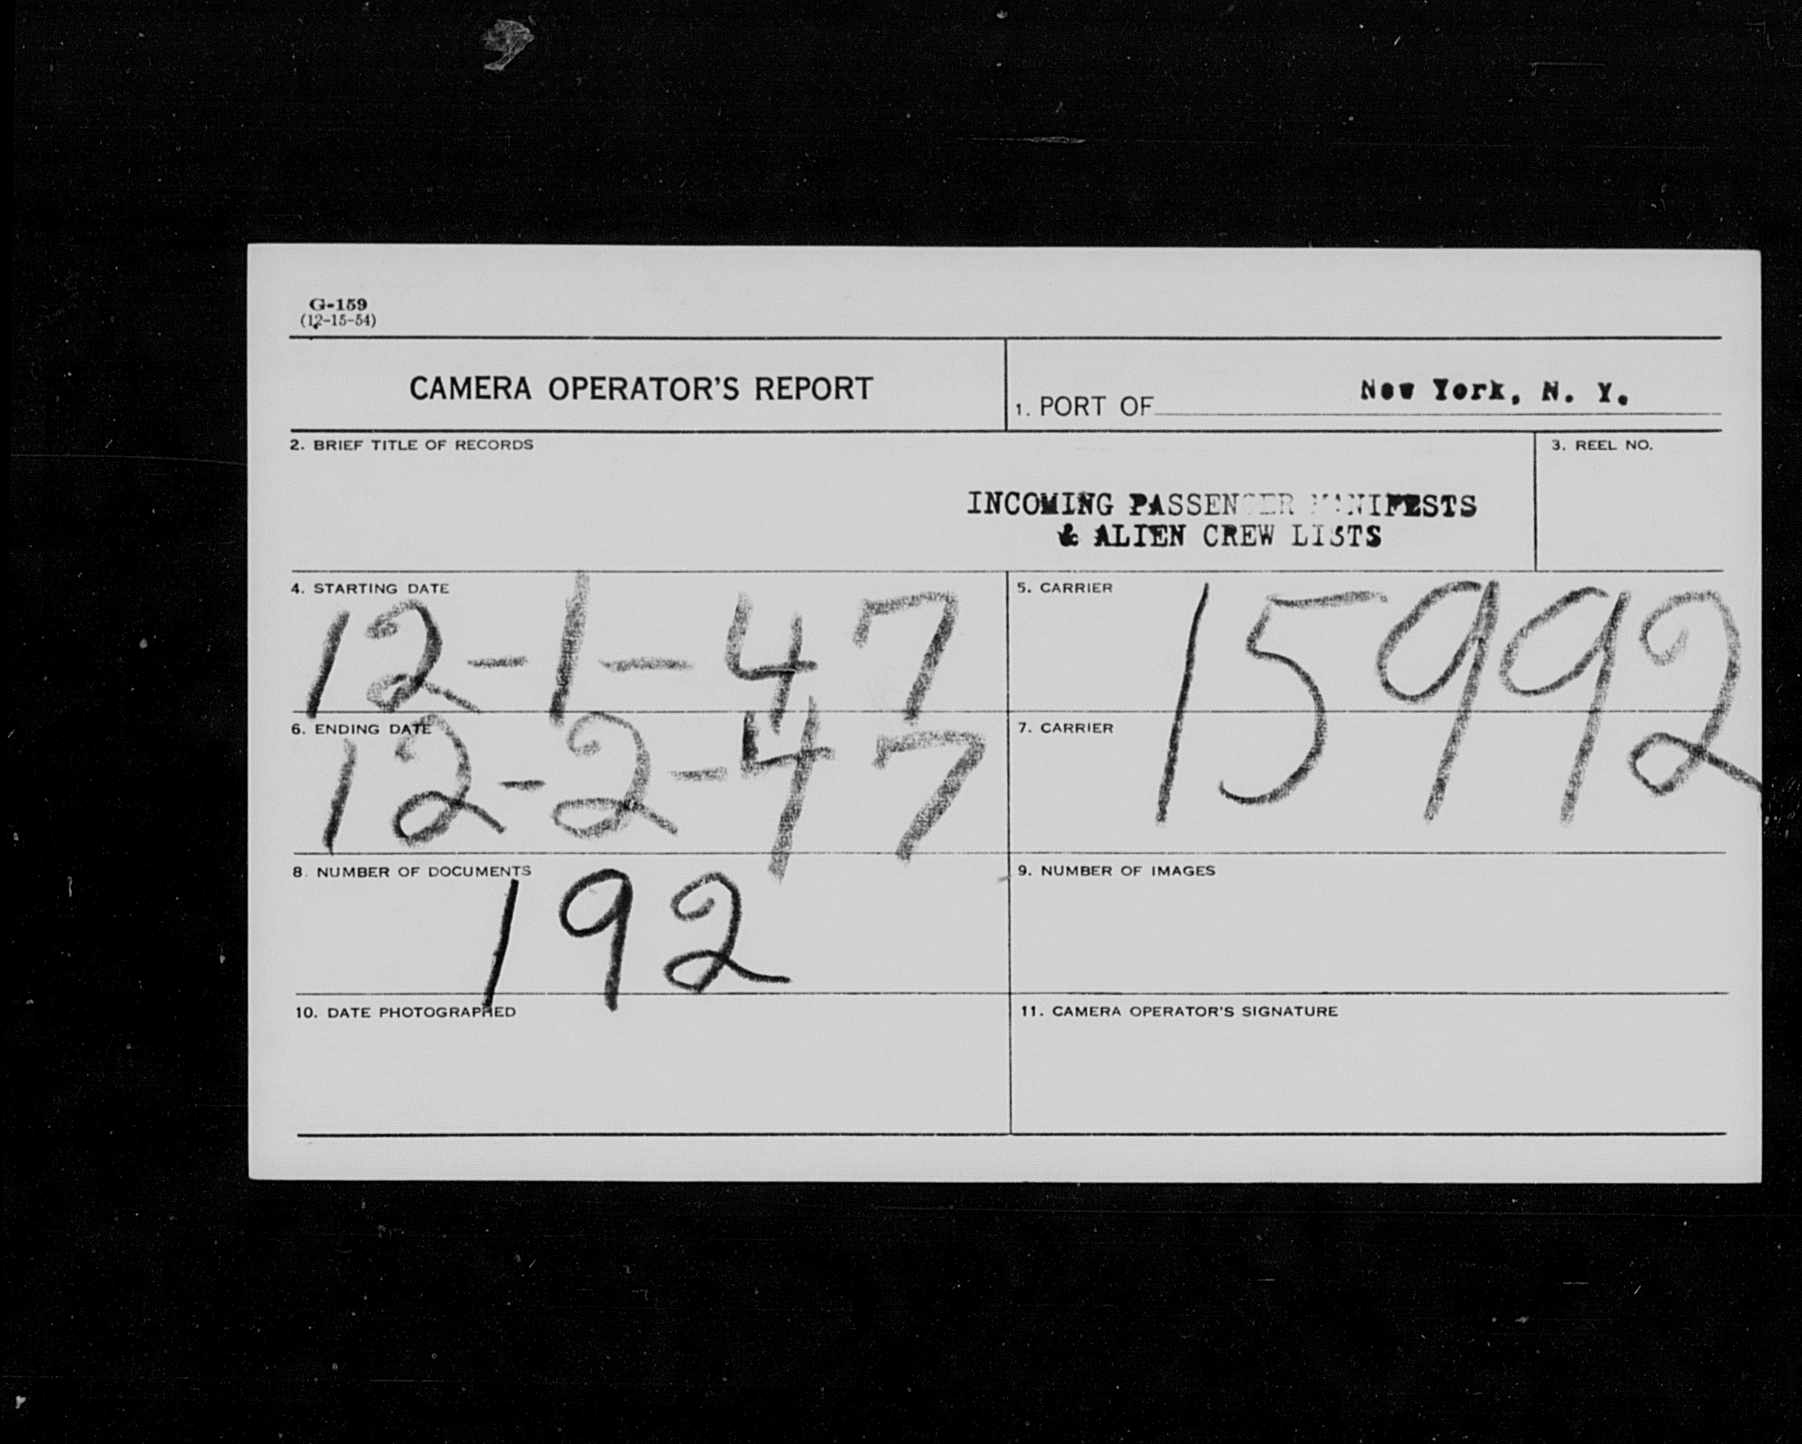 G-159
(12-15-54)
CAMERA OPERATOR'S REPORT
1. PORT OF New York, N. Y.
2. BRIEF TITLE OF RECORDS
3. REEL NO.
INCOMING PASSENGER MANIFESTS
& ALIEN CREW LISTS
4. STARTING DATE
12-1-47
5. CARRIER
15992
6. ENDING DATE
12-2-47
7. CARRIER
8. NUMBER OF DOCUMENTS
192
9. NUMBER OF IMAGES
10. DATE PHOTOGRAPHED
11. CAMERA OPERATOR'S SIGNATURE